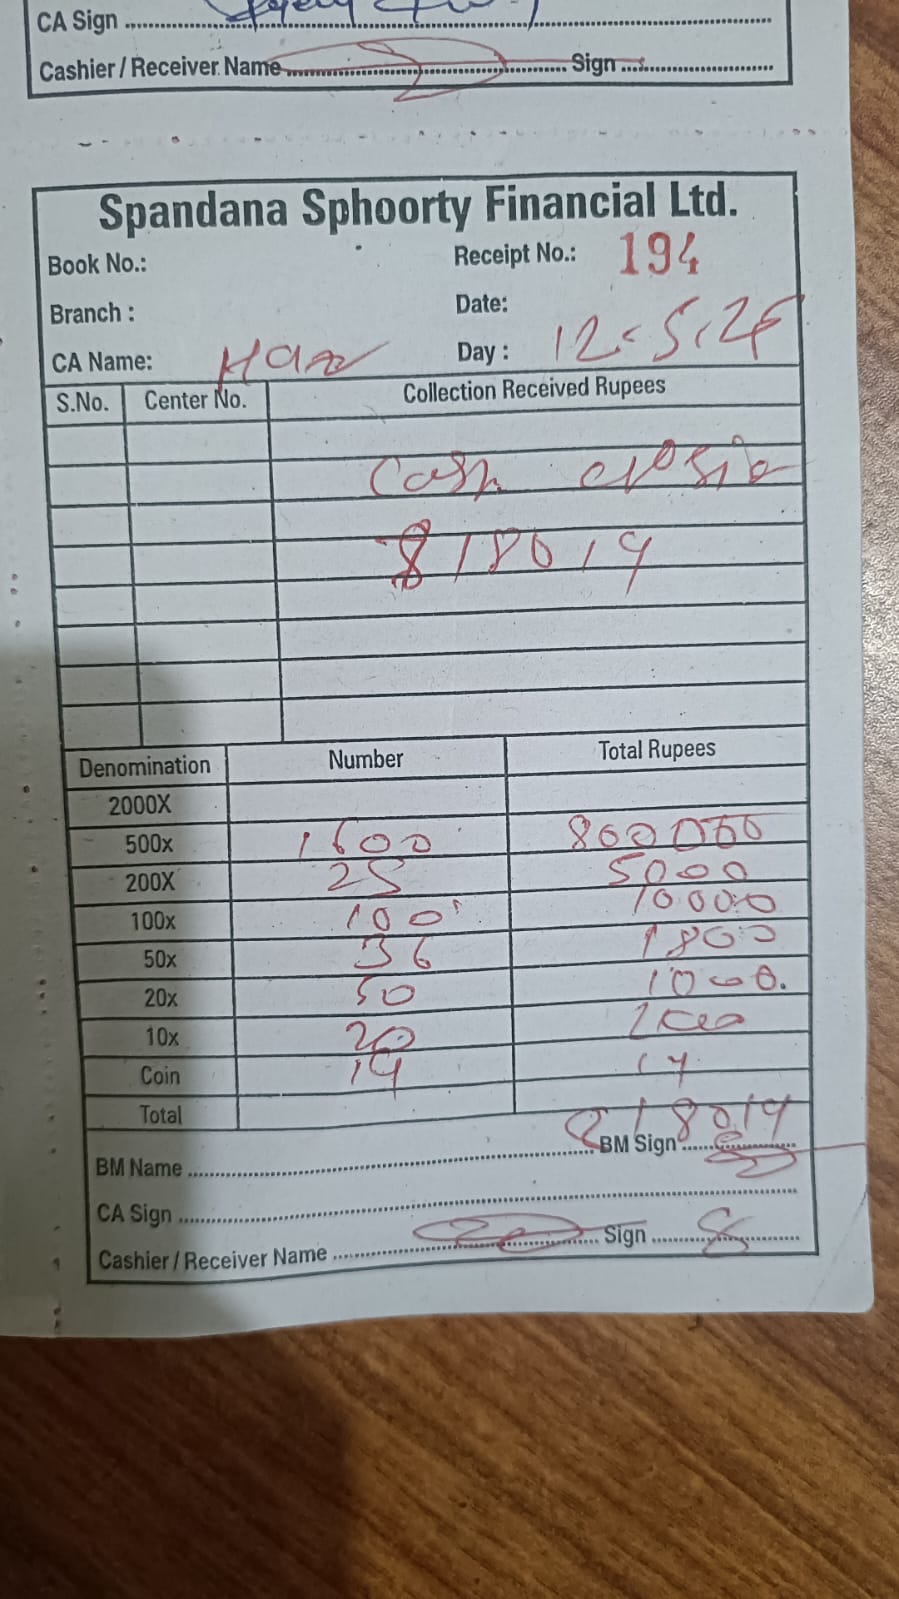 CA Sign
Cashier / Receiver Name Sign
Spandana Sphoorty Financial Ltd.
Book No.: Receipt No.: 194
Branch : Date:
CA Name: Day : 12-5-25
S.No. Center No. Collection Received Rupees
Cash
818019
Denomination Number Total Rupees
2000X
500x 1600 800000
200X 25 5000
100x 100 10000
50x 36 1800
20x 50 1000.
10x 20
Coin 19 19
Total 818019
BM Name BM Sign
CA Sign
Cashier / Receiver Name Sign